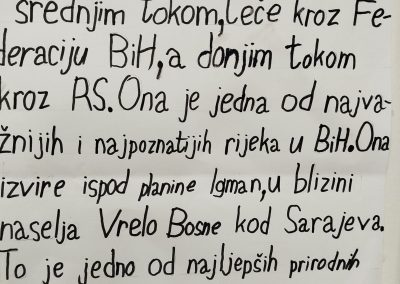 srednjim tokom,teče kroz Fe-
deraciju BiH,a donjim tokom
kroz RS.Ona je jedna od najva-
žnijih i najpoznatijih rijeka u BiH.Ona
izvire ispod planine Igman,u blizini
naselja Vrelo Bosne kod Sarajeva.
To je jedno od najljepših prirodnih